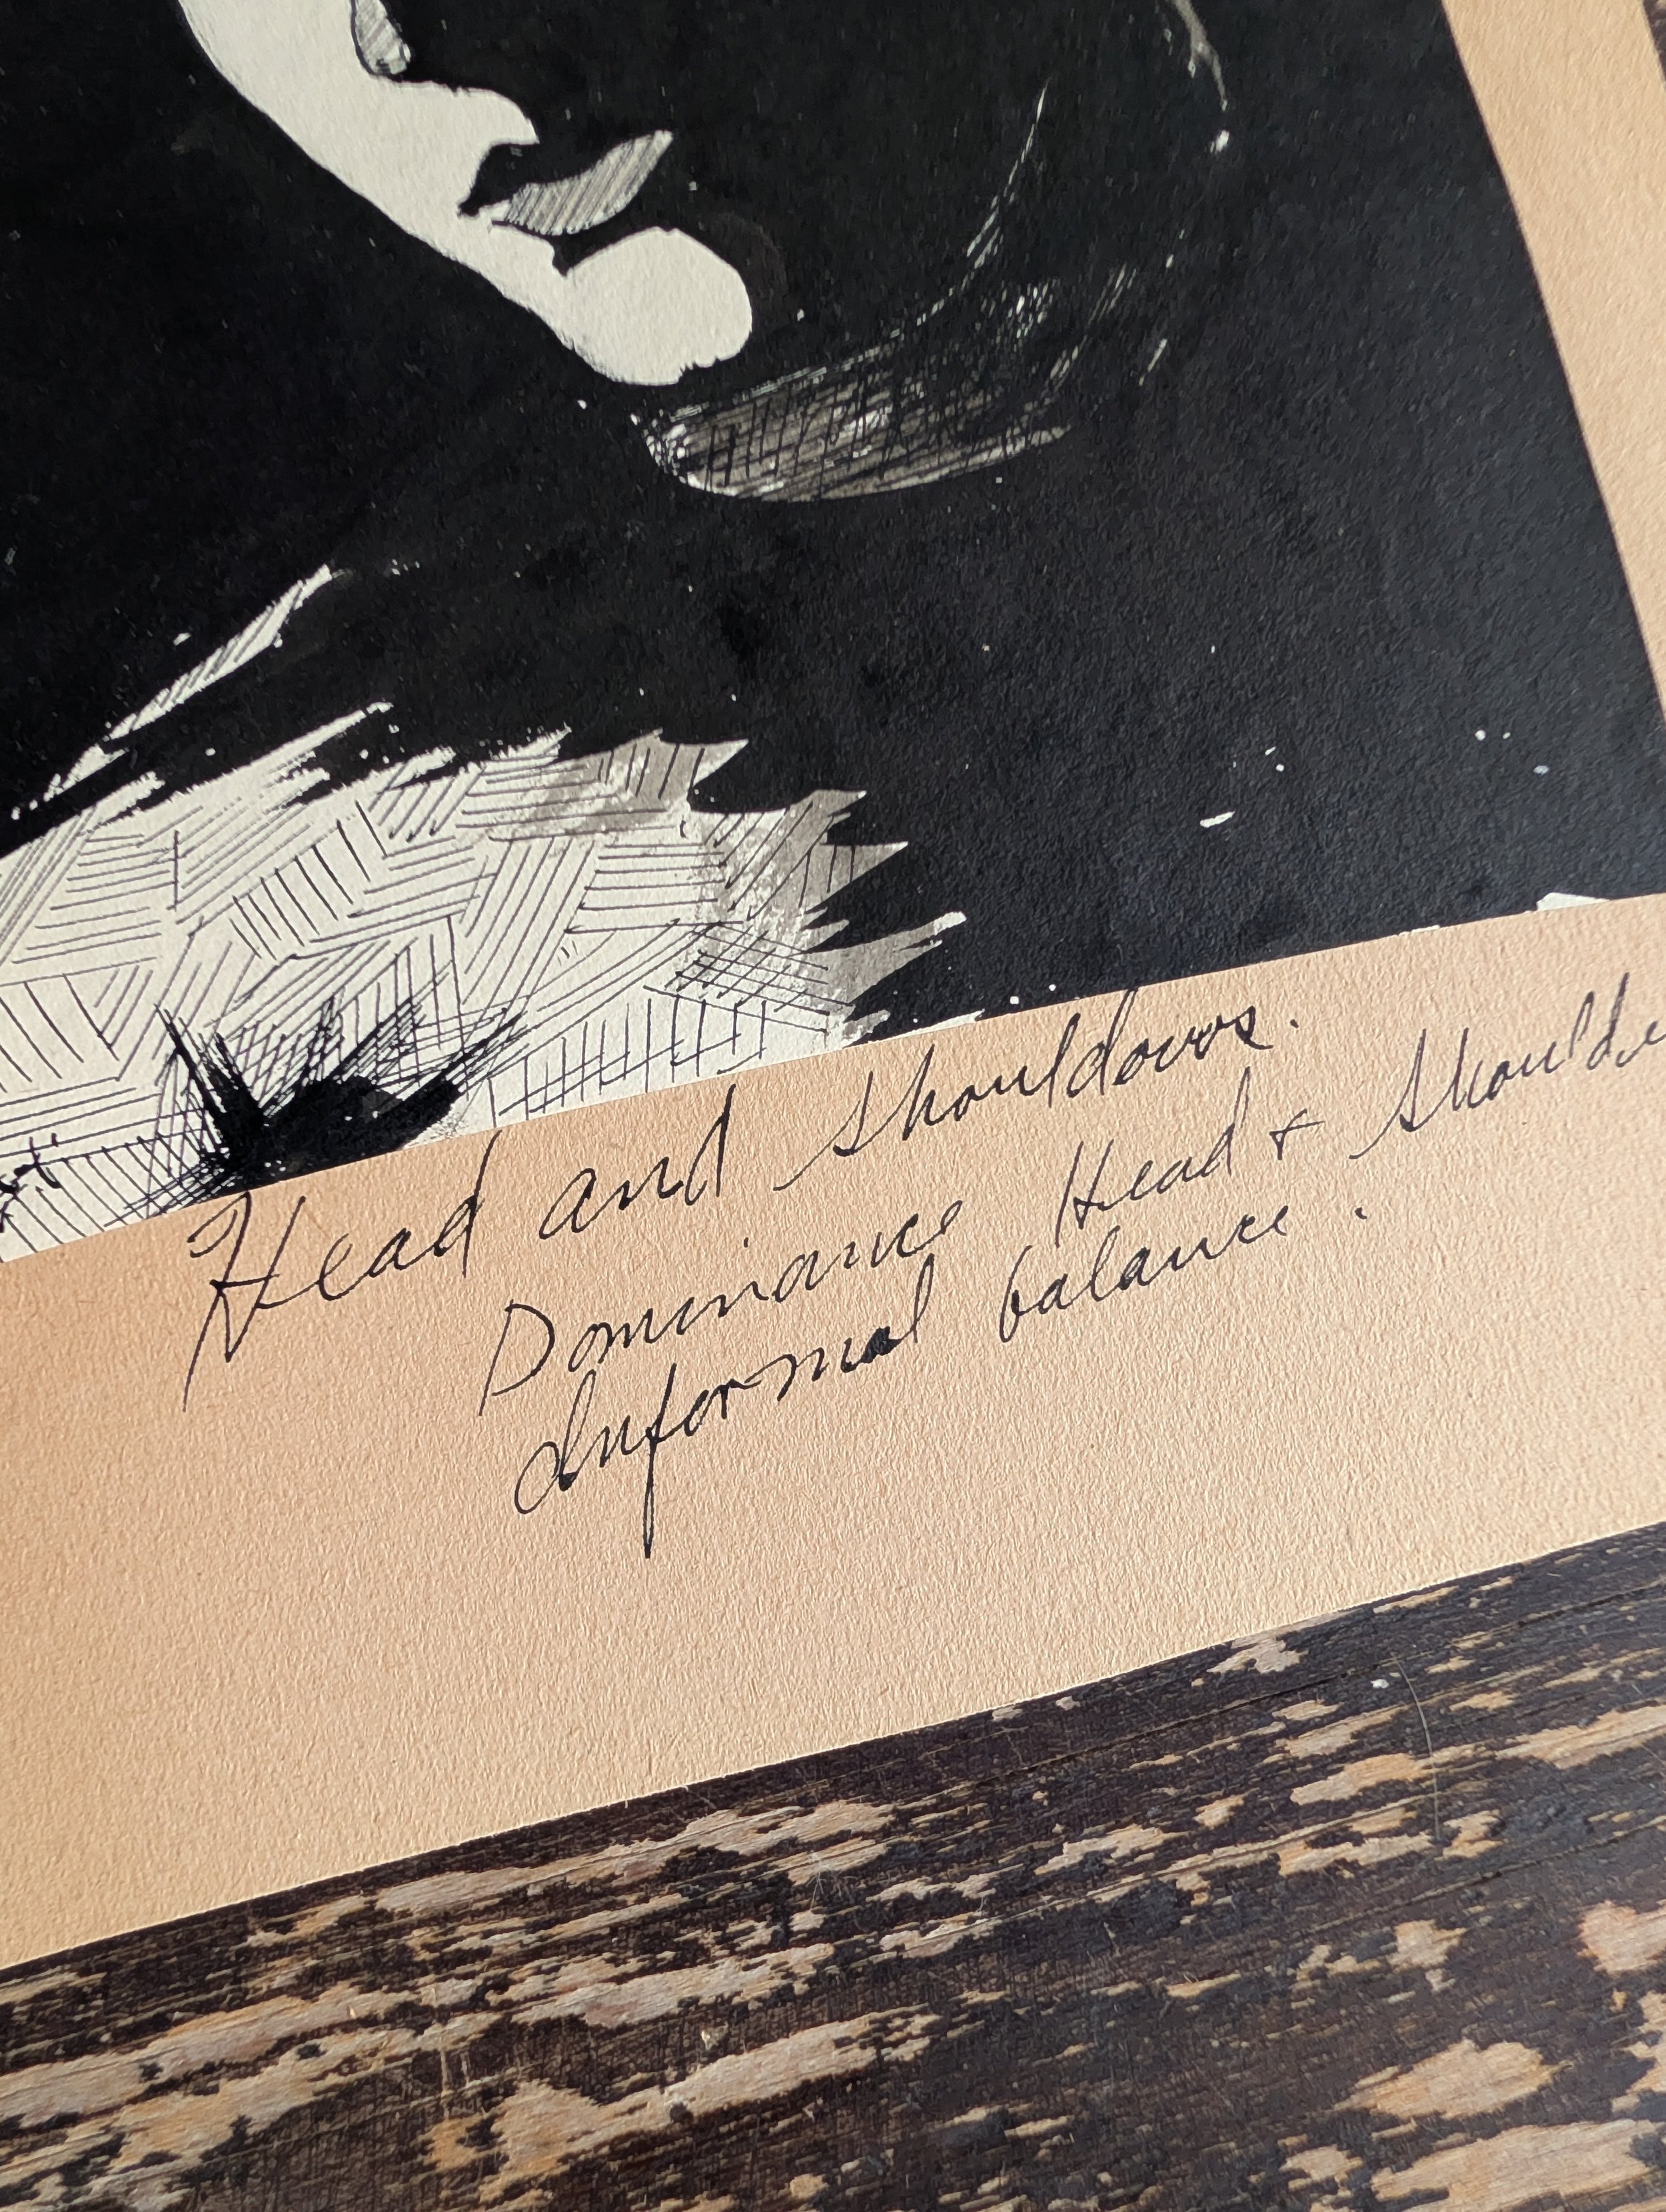 Head and shouldovs.
Dominance Head + Shoulde
Informal balance.